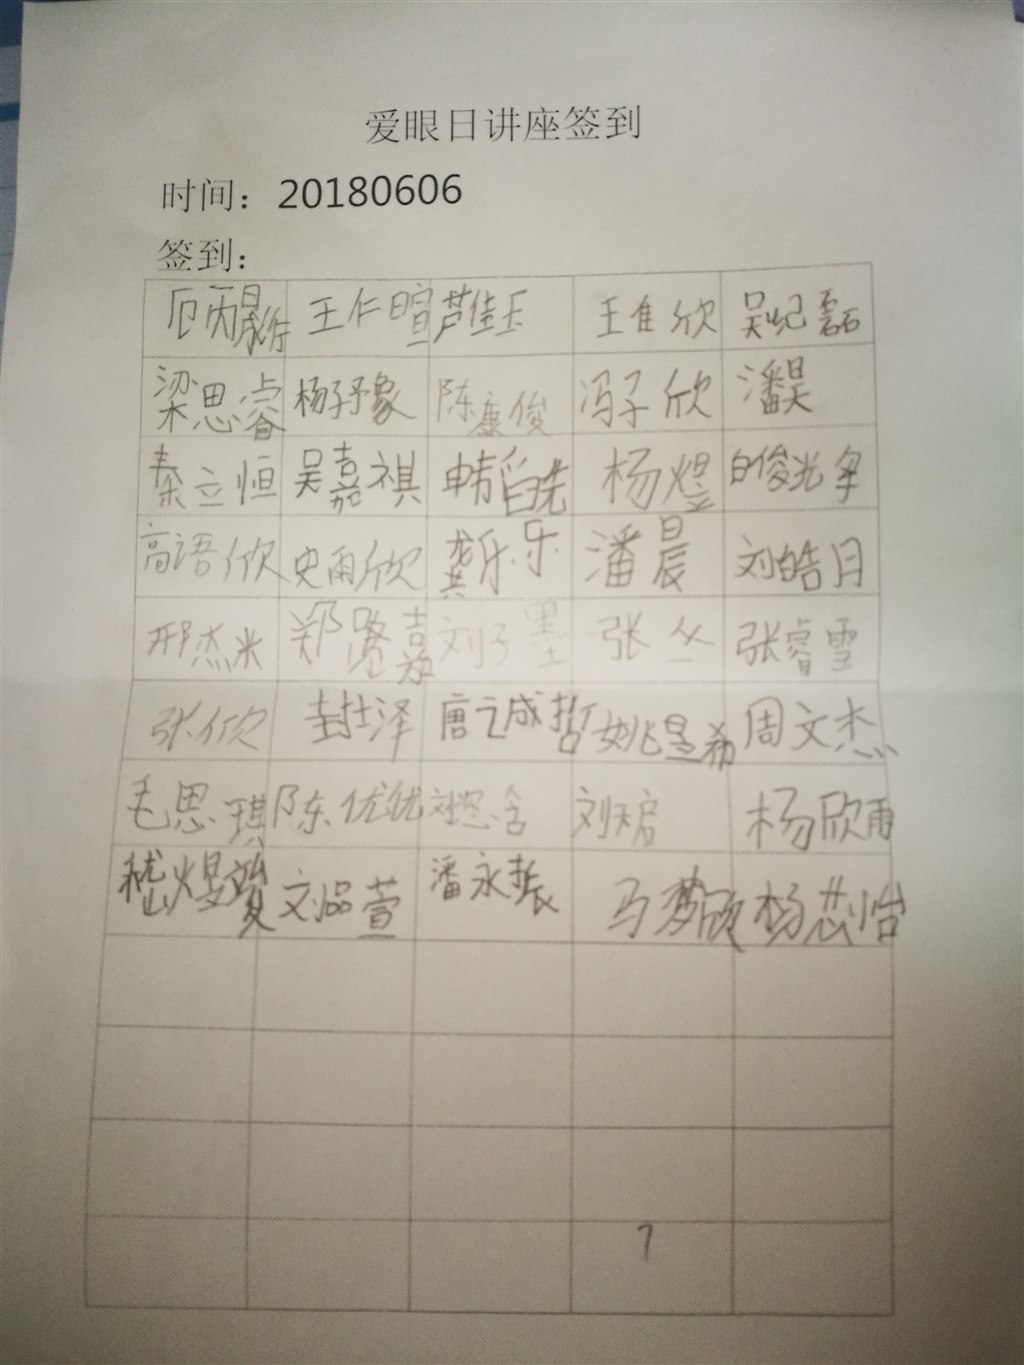 爱眼日讲座签到
时间：20180606
签到：
王仁暄 芦佳玉 王隹欣 吴妃磊
梁思睿 杨子豫 陈康俊 冯子欣 潘昊
秦立恒 吴嘉祺 杨煜
高语欣 史雨欣 龚乐乐 潘晨 刘皓月
邢杰米 郑路嘉 刘子墨 张丛 张睿雪
张欣 封泽 唐之成哲 姚昱希 周文杰
毛思琪 陈优优 刘恩含 刘天启 杨欣雨
刘品萱 潘永振 马梦颀 杨芯怡
7